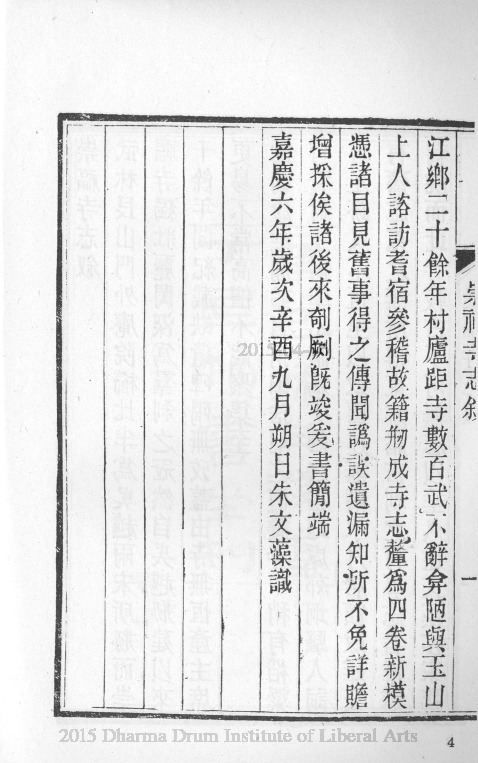 崇福寺志叙
一
江鄉二十餘年村廬距寺數百武不辭弇陋與玉山
上人諮訪耆宿參稽故籍剏成寺志釐爲四卷新模
憑諸目見舊事得之傳聞譌誤遺漏知所不免詳贍
增採俟諸後來剞劂旣竣爰書簡端
嘉慶六年歲次辛酉九月朔日朱文藻識
2015 Dharma Drum Institute of Liberal Arts
4